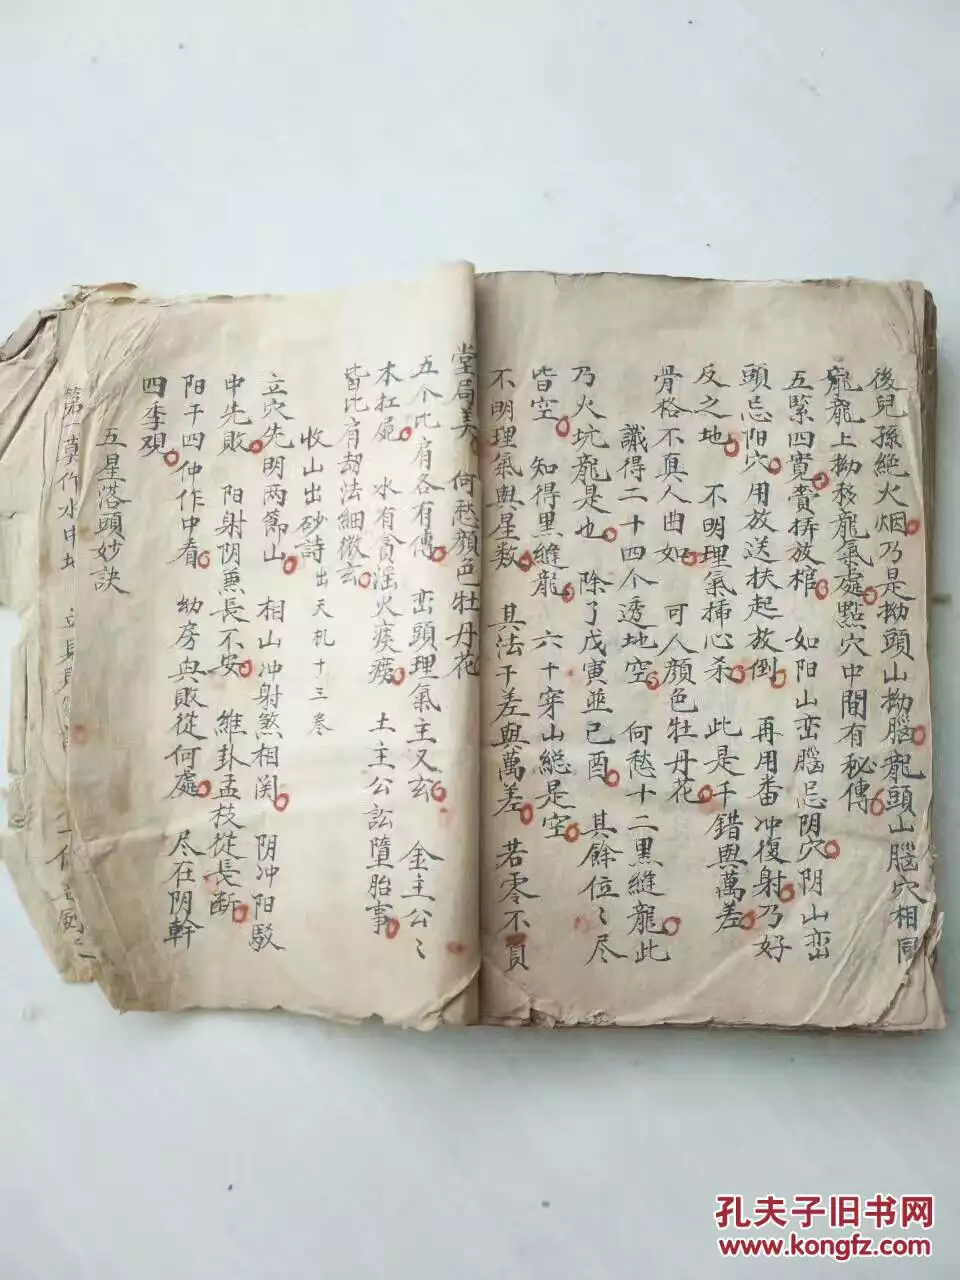 後兒孫絶火烟乃是拗頭山拗腦龍頭山腦穴相同
龍龍上拗杀龍氣處點穴中間有秘傳
五緊四寬賣拼放棺 如阳山峦腦忌阴穴阴山峦
頭忌阳穴用放送扶起放倒 再用番冲復射乃好
反之地 不明理氣揷心杀 此是千錯與萬差
骨格不真人曲如 可人顔色牡丹花
識得二十四个透地空 何愁十二黑縫龍此
乃火坑龍是也 除了戊寅並已酉 其餘位〻尽
皆空 知得黑縫龍 六十穿山総是空
不明理氣與星数 其法千差與萬差 若零不負
堂局美 何愁顔色牡丹花
五个比肩各有傳 峦頭理氣主又玄 金主公〻
木扛屍 水有貪滛火痰癆 土主公訟墮胎事
皆比肩劫法細微玄
收山出砂詩 出天机十三卷
立穴先明两節山 相山冲射煞相関 阴冲阳駁
中先敗 阳射阴䓕長不安 維卦孟枝從長断
阳干四仲作中看 幼房與敗從何處 尽在阴幹
四季观
五星落頭妙訣